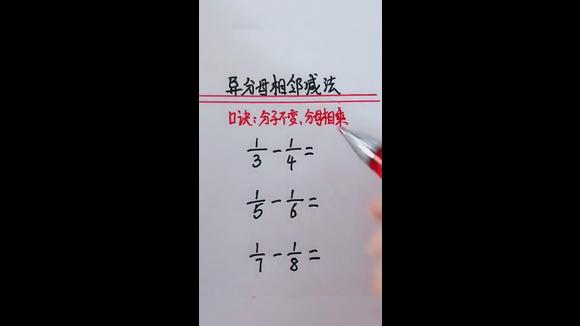 异分母相邻减法
口诀:分子不变、分母相乘
1/3 - 1/4 =
1/5 - 1/6 =
1/7 - 1/8 =